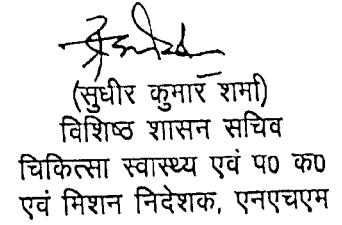 (सुधीर कुमार शर्मा)
विशिष्ठ शासन सचिव
चिकित्सा स्वास्थ्य एवं प0 क0
एवं मिशन निदेशक, एनएचएम